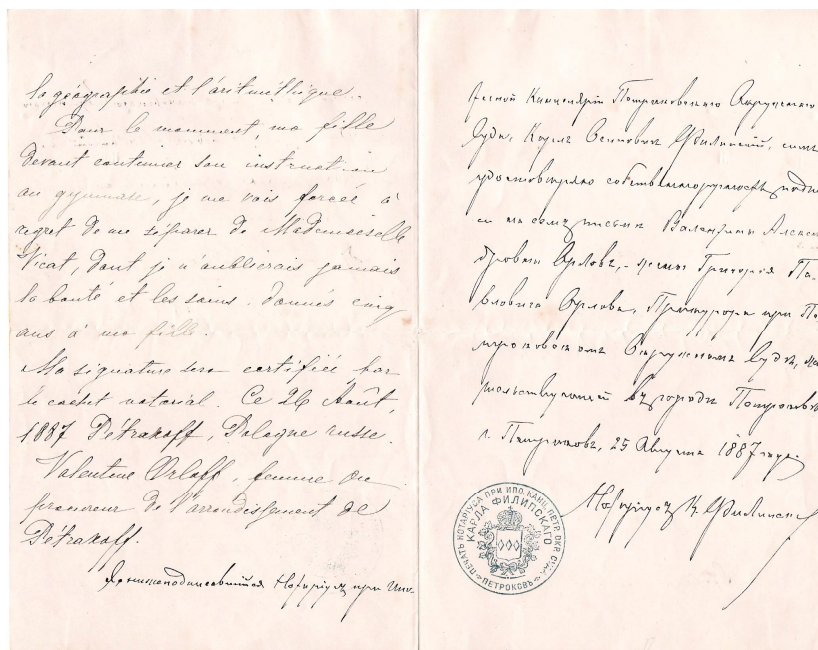 la géographie et l'aritméthique.
Pour le momment, ma fille
devant continuer son instruction
au gymnase, je me vois forcée à
regret de me séparer de Mademoiselle
Vicat, dont je n'oublierais jamais
la bonté et les soins donnés cinq
ans à ma fille.
Ma signature sera certifiée par
le cachet notarial. Ce 26 Août,
1887 Pétrakoff, Pologne russe.
Valentine Orloff, femme du
procureur de l'arrondissement de
Pétrakoff.
Я нижеподписавшійся Нотаріусъ при Ипо-
течной Канцеляріи Петроковскаго Окружнаго
Суда, Карлъ Осиповичъ Филипскій, симъ
удостовѣряю собственноручность подпи
си на семъ письмѣ Валентины Алексан
дровны Орловъ, жены Григорія Па-
вловича Орлова, Прокурора при Пе
троковскомъ Окружномъ Судѣ, жи
тельствующей въ городѣ Петроковѣ
г. Петроковъ, 25 Августа 1887 года.
Нотаріусъ К. Филипскі
ПЕЧАТЬ НОТАРІУСА ПРИ ИПО. КАНЦ. ПЕТР. ОКР. СУДА
КАРЛА ФИЛИПСКАГО
ПЕТРОКОВЪ